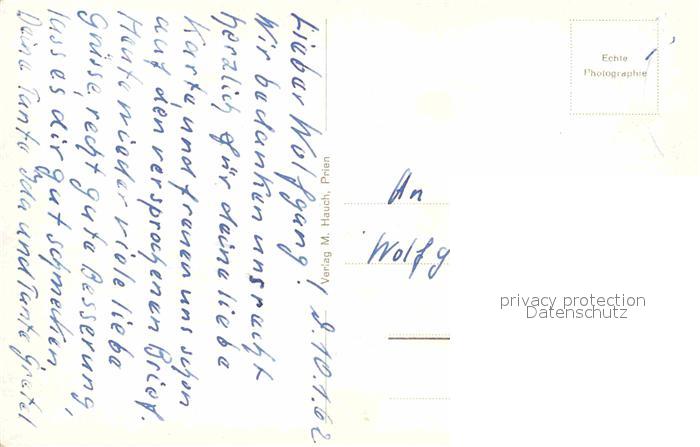 Lieber Wolfgang! d. 10.1.62.
Wir bedanken uns recht
herzlich für deine liebe
Karte, und freuen uns schon
auf den versprochenen Brief.
Heute wieder viele liebe
Grüsse, recht gute Besserung,
lass es dir gut schmecken
Deine Tante Ida und Tante Gretel
Verlag M. Hauch, Prien
Echte
Photographie
An
Wolfg
privacy protection
Datenschutz